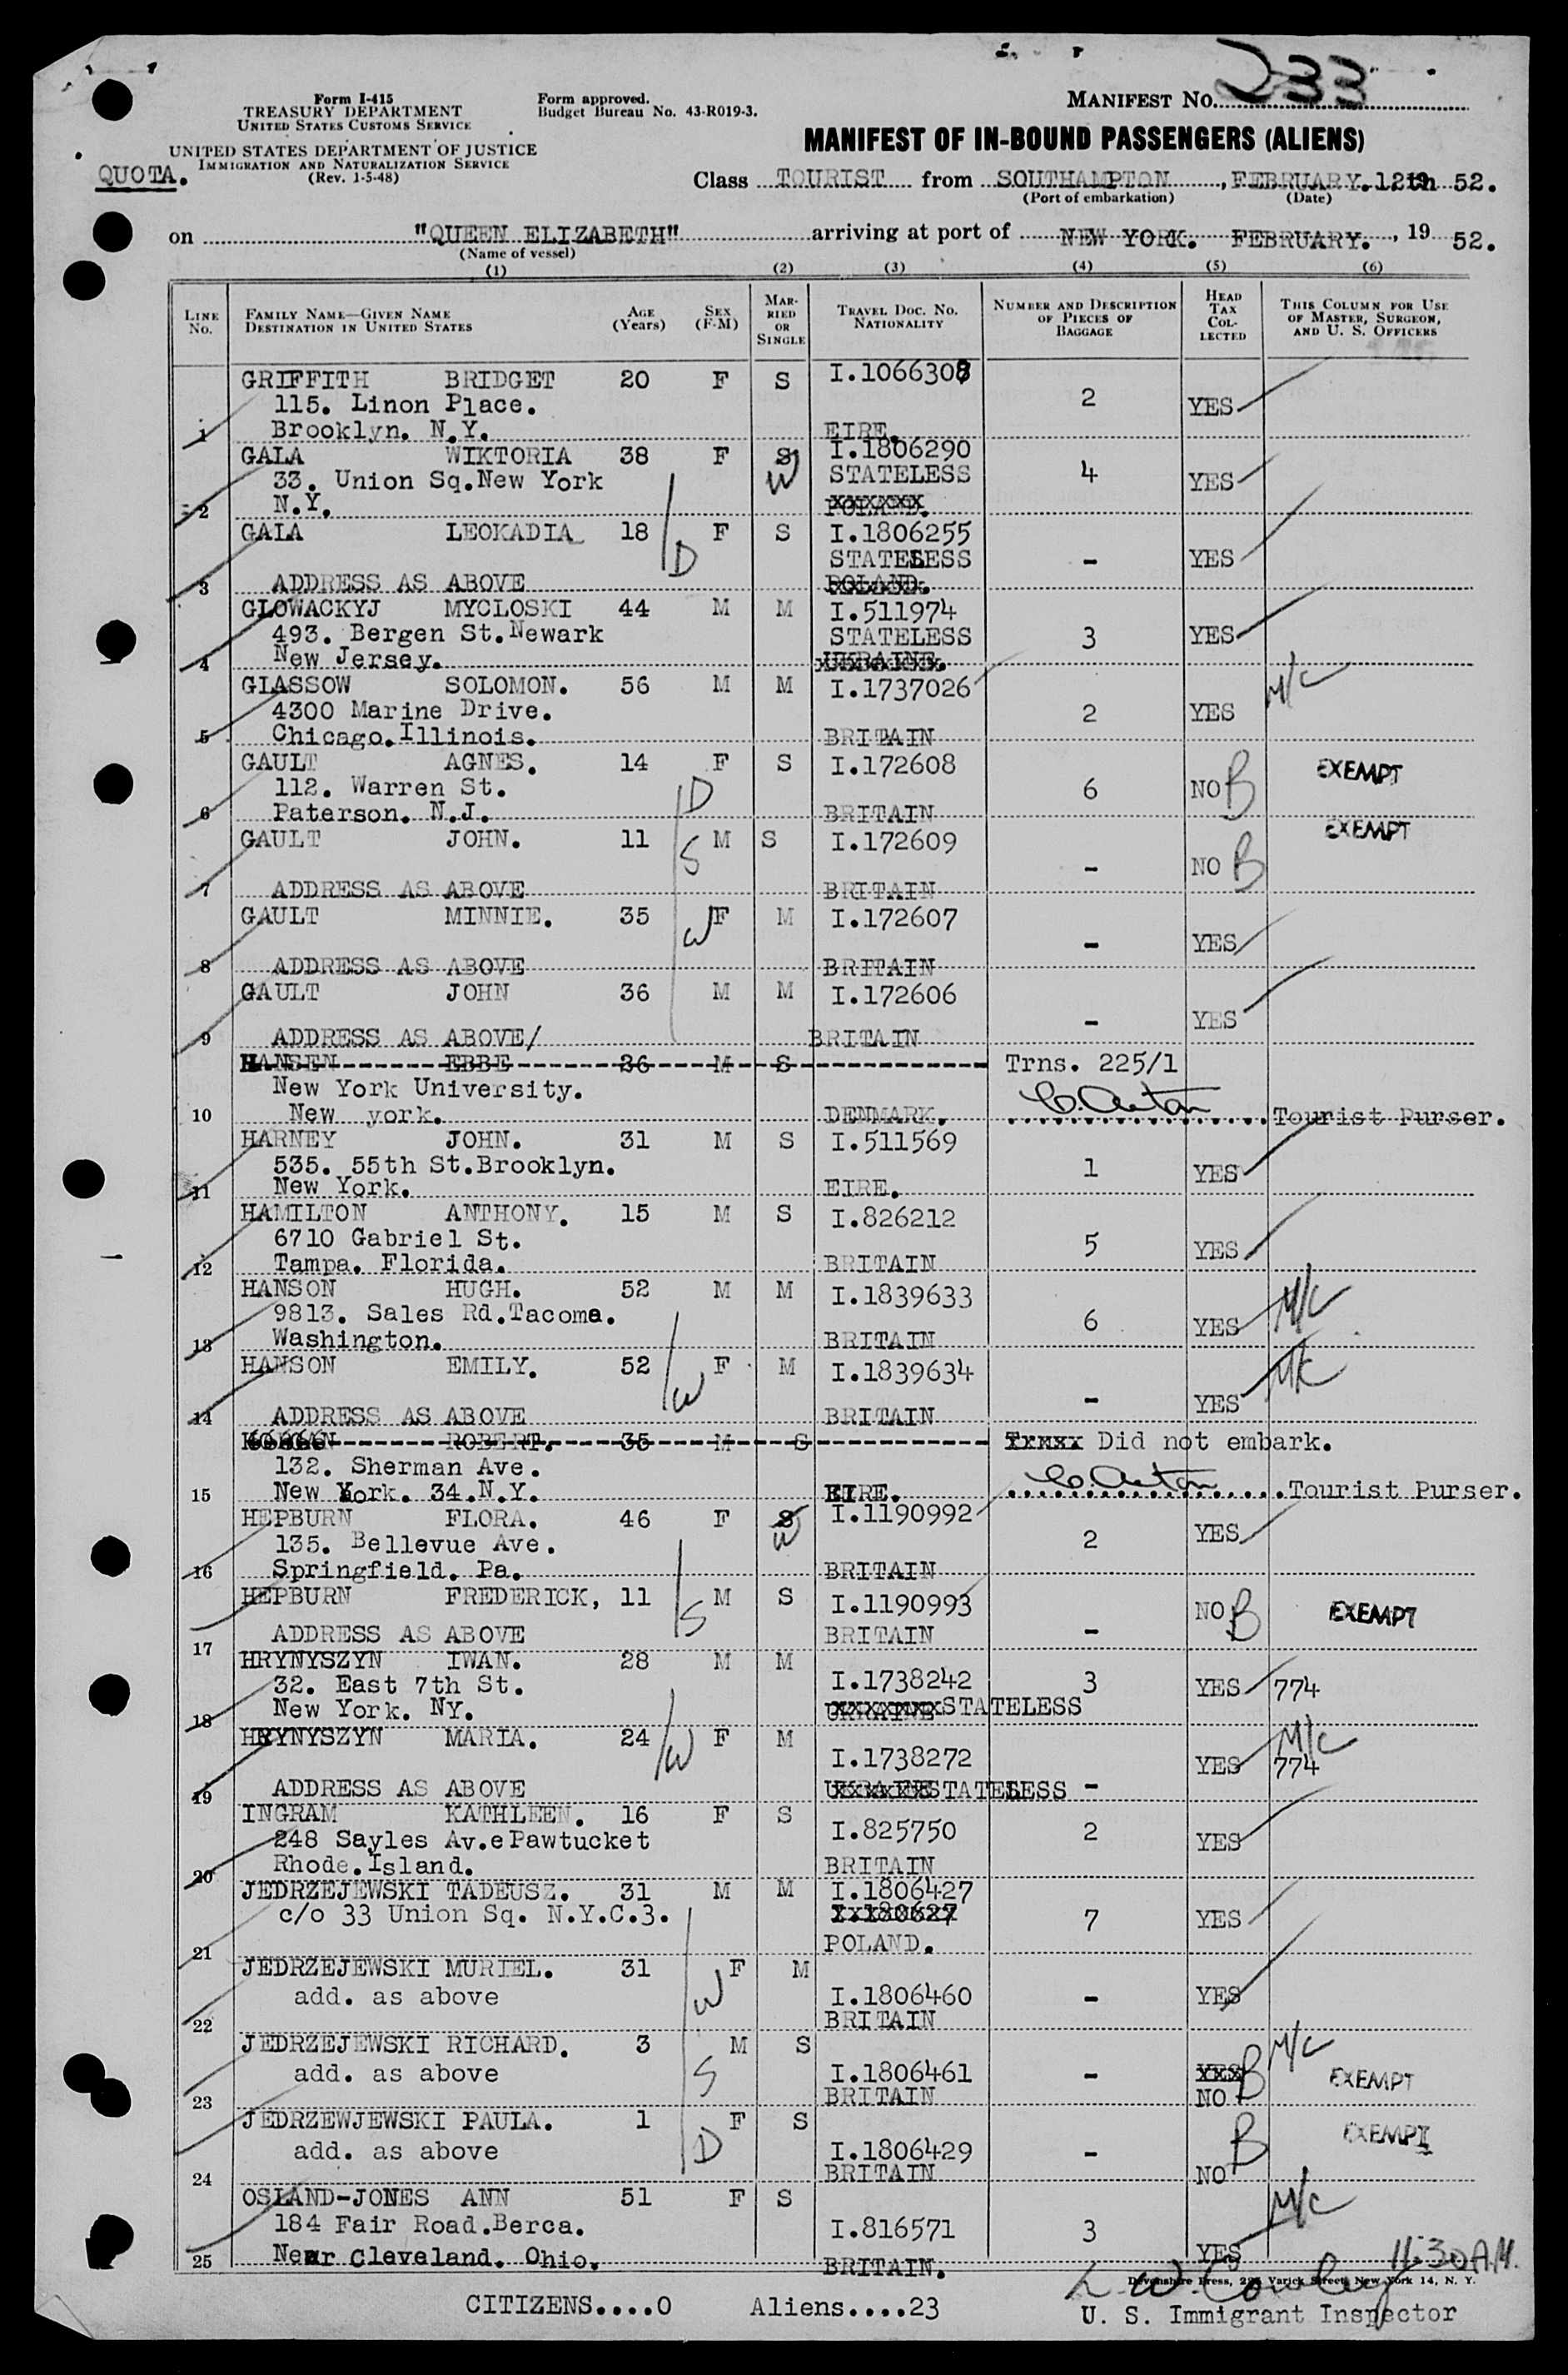 233
Form I-415
TREASURY DEPARTMENT
UNITED STATES CUSTOMS SERVICE
UNITED STATES DEPARTMENT OF JUSTICE
IMMIGRATION AND NATURALIZATION SERVICE
(Rev. 1-5-48)
QUOTA.
Form approved.
Budget Bureau No. 43-R019-3.
MANIFEST NO.
MANIFEST OF IN-BOUND PASSENGERS (ALIENS)
Class TOURIST from SOUTHAMPTON, FEBRUARY. 12th 52.
(Port of embarkation) (Date)
on "QUEEN ELIZABETH" arriving at port of NEW YORK. FEBRUARY., 19 52.
(Name of vessel)
(1) (2) (3) (4) (5) (6)
LINE No. FAMILY NAME—GIVEN NAME DESTINATION IN UNITED STATES AGE (Years) SEX (F-M) MARRIED OR SINGLE TRAVEL DOC. NO. NATIONALITY NUMBER AND DESCRIPTION OF PIECES OF BAGGAGE HEAD TAX COLLECTED THIS COLUMN FOR USE OF MASTER, SURGEON, AND U. S. OFFICERS
GRIFFITH BRIDGET 20 F S I.1066308
115. Linon Place. 2 YES
1 Brooklyn. N.Y. EIRE.
GALA WIKTORIA 38 F S W I.1806290
33. Union Sq.New York STATELESS 4 YES
2 N.Y. POLAND.
GALA LEOKADIA 18 D F S I.1806255
STATELESS - YES
3 ADDRESS AS ABOVE POLAND.
GLOWACKYJ MYCLOSKI 44 M M I.511974
493. Bergen St.Newark STATELESS 3 YES
4 New Jersey. UKRAINE.
GLASSOW SOLOMON. 56 M M I.1737026 M/C
4300 Marine Drive. 2 YES
5 Chicago.Illinois. BRITAIN
GAULT AGNES. 14 D F S I.172608 EXEMPT
112. Warren St. 6 NO B
6 Paterson. N.J. BRITAIN
GAULT JOHN. 11 S M S I.172609 EXEMPT
- NO B
7 ADDRESS AS ABOVE BRITAIN
GAULT MINNIE. 35 W F M I.172607
- YES
8 ADDRESS AS ABOVE BRITAIN
GAULT JOHN 36 M M I.172606
- YES
9 ADDRESS AS ABOVE/ BRITAIN
HANSEN EBBE 26 M S Trns. 225/1
New York University.
10 New york. DENMARK. Tourist Purser.
HARNEY JOHN. 31 M S I.511569
535. 55th St.Brooklyn. 1 YES
11 New York. EIRE.
HAMILTON ANTHONY. 15 M S I.826212
6710 Gabriel St. 5 YES
12 Tampa. Florida. BRITAIN
HANSON HUGH. 52 M M I.1839633 M/C
9813. Sales Rd.Tacoma. 6 YES
13 Washington. BRITAIN
HANSON EMILY. 52 W F M I.1839634 M/C
- YES
14 ADDRESS AS ABOVE BRITAIN
ROBERT. 35 M S Did not embark.
132. Sherman Ave.
15 New York. 34.N.Y. EIRE. Tourist Purser.
HEPBURN FLORA. 46 F S W I.1190992
135. Bellevue Ave. 2 YES
16 Springfield. Pa. BRITAIN
HEPBURN FREDERICK, 11 S M S I.1190993 NO B EXEMPT
ADDRESS AS ABOVE BRITAIN -
17
HRYNYSZYN IWAN. 28 M M
32. East 7th St. I.1738242 3 YES 774
18 New York. NY. UKRAINE STATELESS
HRYNYSZYN MARIA. 24 W F M M/C
I.1738272 YES 774
19 ADDRESS AS ABOVE UKRAINE STATELESS -
INGRAM KATHLEEN. 16 F S
248 Sayles Av.e Pawtucket I.825750 2 YES
20 Rhode.Island. BRITAIN
JEDRZEJEWSKI TADEUSZ. 31 M M I.1806427
c/o 33 Union Sq. N.Y.C.3. I.180627 7 YES
21 POLAND.
JEDRZEJEWSKI MURIEL. 31 W F M
add. as above I.1806460 - YES
22 BRITAIN
JEDRZEJEWSKI RICHARD. 3 S M S M/C
add. as above I.1806461 - YES B EXEMPT
23 BRITAIN NO
JEDRZEWJEWSKI PAULA. 1 D F S B EXEMPT
add. as above I.1806429 -
24 BRITAIN NO
OSLAND-JONES ANN 51 F S M/C
184 Fair Road.Berca. I.816571 3 YES
25 Near Cleveland. Ohio. BRITAIN. 11.30 A.M.
Devonshire Press, Varick Street, New York 14, N. Y.
CITIZENS....0 Aliens....23 U. S. Immigrant Inspector